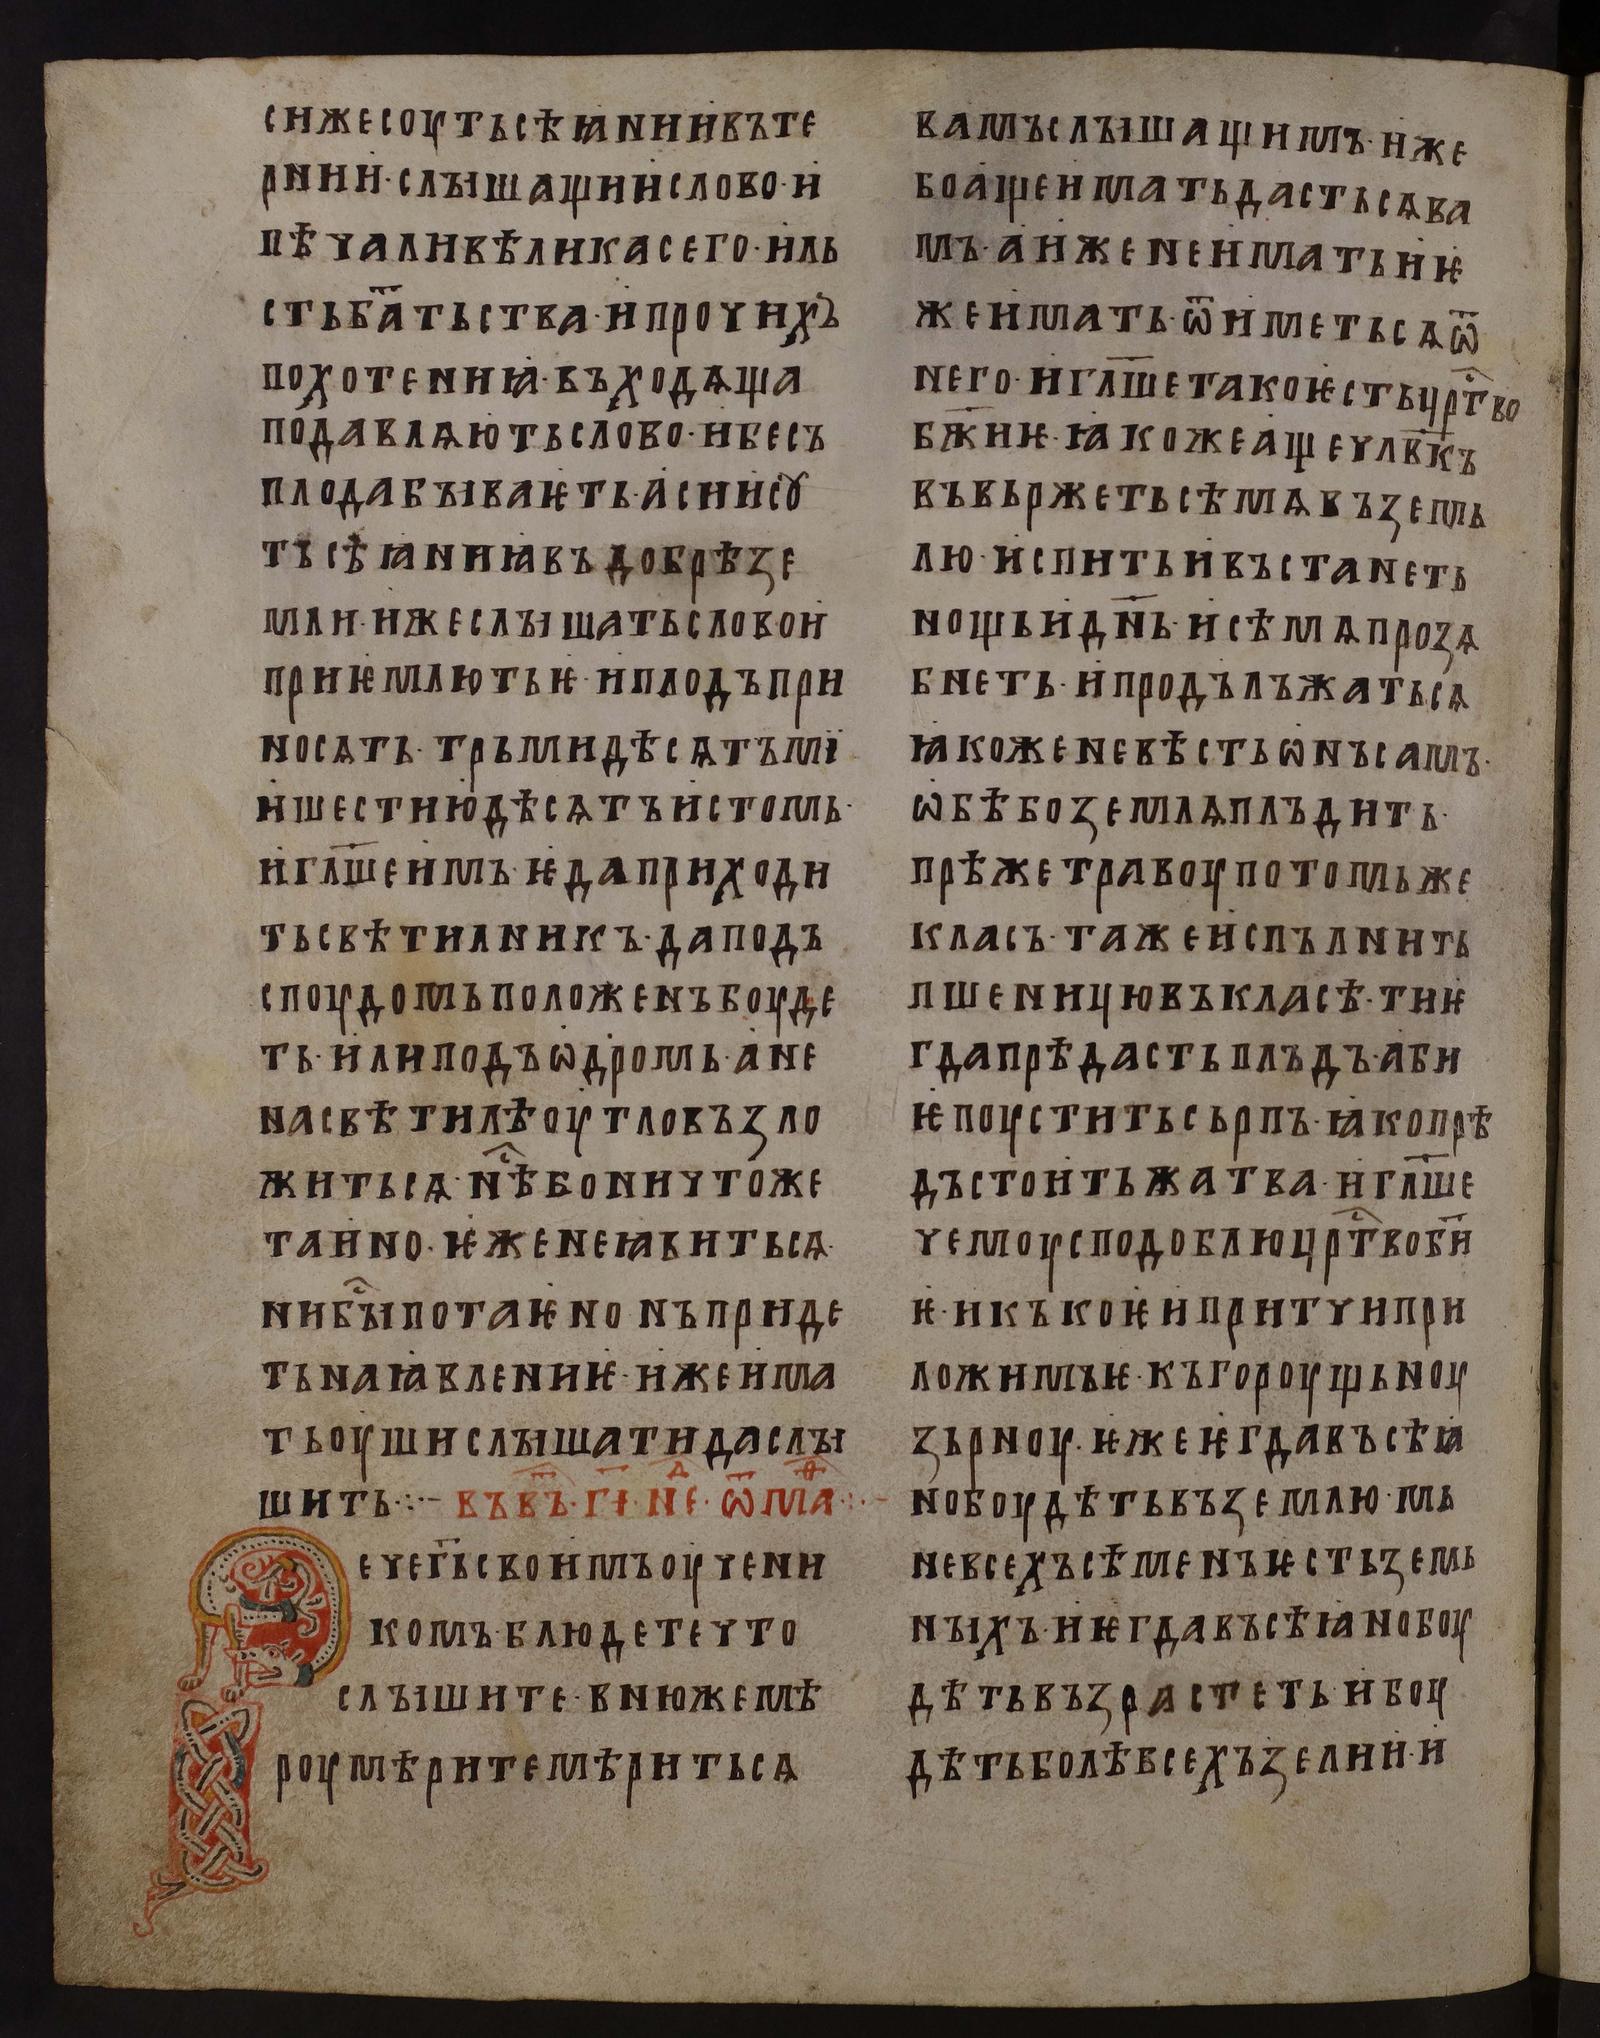 сижесоуть сѣꙗнии въ те
рнии· слышащии слово· и
пѣчали вѣлика сего· и ль
сть ба҃тьства· и прочихъ
похотении ꙗ· въходѧща
подавлѧють слово· и бесъ
плода бываѥть· а сии сꙋ
ть сѣꙗниꙗ въ добрѣ зе
мли· иже слышать слово и
приѥмлють ѥ· и плодъ при
носѧть· трьми дѣсѧтъмі
и шестию дѣсѧтъ и стомь·
и гл҃ше имъ· ѥда приходи
ть свѣтилникъ· да подъ
споудомь положенъ боуде
ть· или подъ ѡдромь· а не
на свѣтилѣ оу тло възло
житьсѧ· нⷭ҇ѣ бо ничтоже
таино· ѥже не ꙗвитьсѧ·
ни бⷭ҇ы потаѥно нъ приде
ть на ꙗвлениѥ· иже има
ть оуши слышати да слы
шить·:- въ в҃ъ· г҃ı· нⷣе· ѿ маⷴ·:-
Рече г҃ь своимъ оучени
комъ· блюдете что
слышите· в нюже мѣ
роу мѣрите мѣритьсѧ
вамъ слышащимъ· иже
бо аще имать дастьсѧ ва
мъ· а иже не имать и ѥ
же имать· ѿиметьсѧ ѿ
него· и гл҃ше тако ѥсть црⷭ҇тво
бж҃иѥ· ꙗкоже аще члв҃къ
въвьржеть сѣмѧ въ земь
лю· и спить и въстанеть
нощь и дн҃ь· и сѣмѧ прозѧ
бнеть· и продължатьсѧ
ꙗкоже не вѣсть ѡнъ самъ·
ѡбѣ бо землѧ плъдить·
прѣже травоу потомь же
класъ· таже исплънить
пшеницю въ класѣ· ти ѥ
гда прѣдасть плъдъ· аби
ѥ поустить сьрпъ· ꙗко прѣ
дъстоить жатва· и гл҃ше
чемоу сподоблю црⷭ҇тво бж҃и
ѥ· и къ коѥи притчи при
ложимъ ѥ· къ гороущьноу
зьрноу· ѥже ѥгда въсѣꙗ
но боудѣть въ землю· мь
не всехъ сѣменъ ѥсть земь
ныхъ· и ѥгда въсѣꙗно боу
дѣть възрастеть и боу
дѣть болѣ всехъ зелии· и